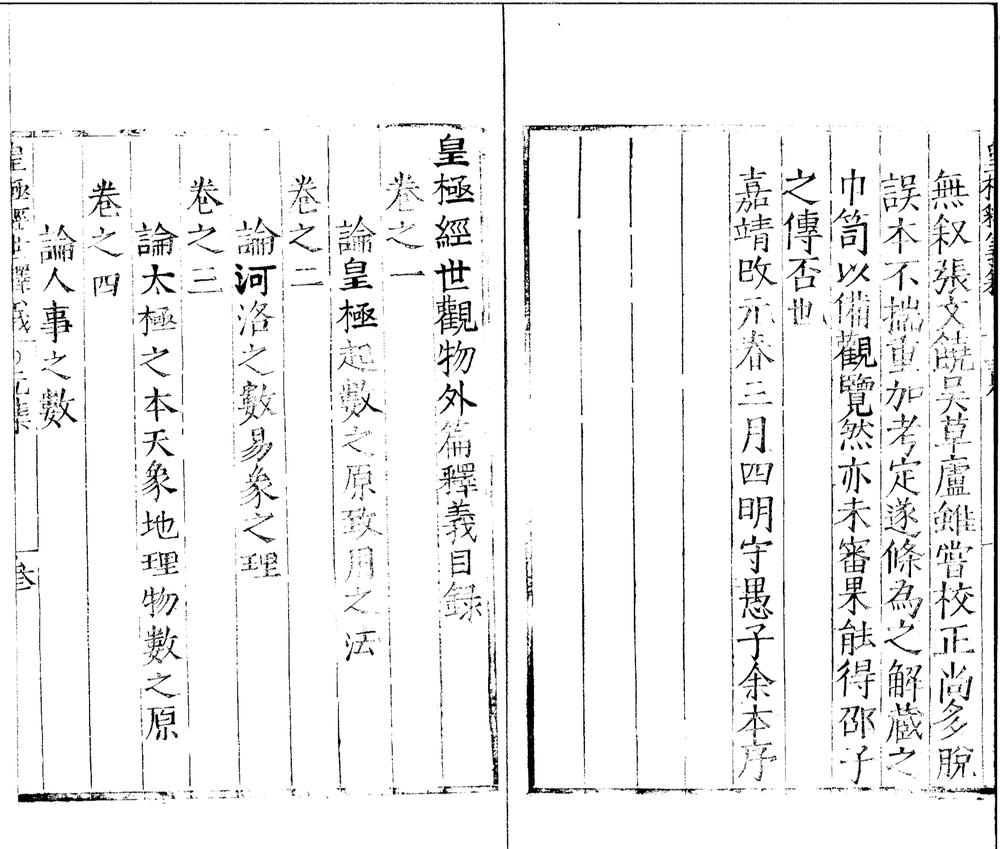 無叙張文饒吴草廬雖嘗校正尚多脫
誤本不揣重加考定遂條為之解蔵之
巾笥以備觀覽然亦未審果能得邵子
之傳否也
嘉靖改元春三月四明守愚子余本序
皇極經世觀物外篇釋義目録
卷之一
論皇極起數之原致用之法
卷之二
論河洛之數易象之理
卷之三
論太極之本天象地理物數之原
卷之四
論人事之數
皇極經世釋義
元集